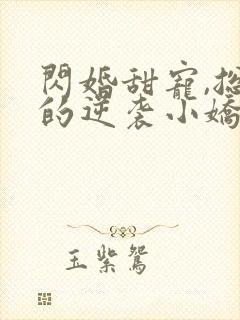 閃婚甜寵,总
的逆袭小嬌
玉紫鴛